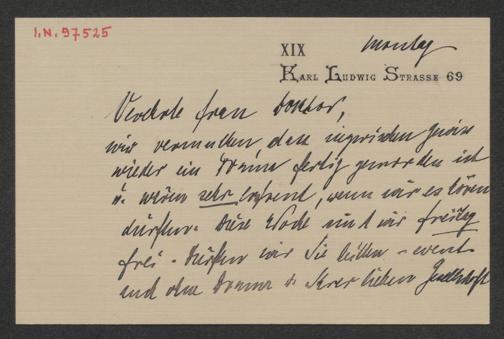 I.N. 97525
Montag
XIX
Karl Ludwig Strasse 69
Verehrte Frau Doktor,
wir vermuthen dass inzwischen gewiss
wieder ein Drama fertig geworden ist
u. wären sehr erfreut, wenn wir es hören
dürften. Diese Woche sind wir Freitag
frei. Dürfen wir Sie bitten - event.
auch ohne Drama u. Ihrer lieben Gesellschaft